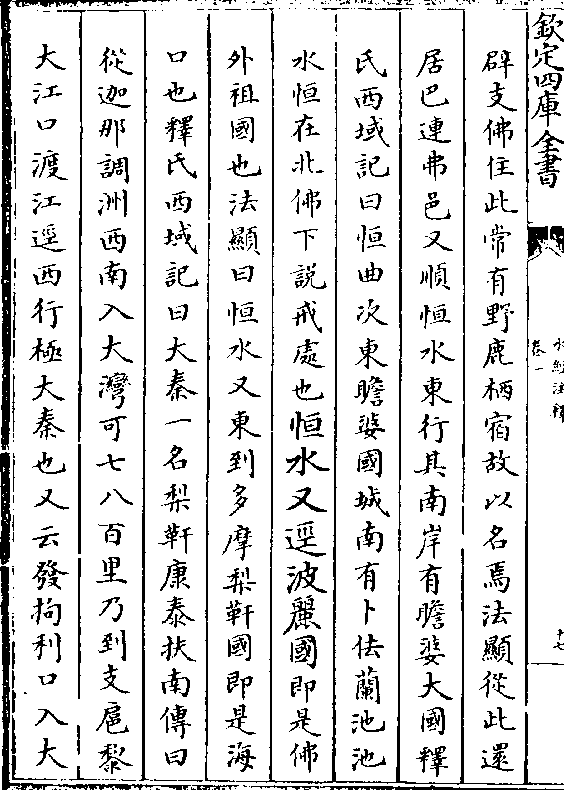 欽定四庫全書
水經注釋
卷一
十七
辟支佛住此常有野鹿栖宿故以名焉法顯從此還
居巴連弗邑又順恒水東行其南岸有瞻婆大國釋
氏西域記曰恒曲次東瞻婆國城南有卜佉蘭池池
水恒在北佛下説戒處也恒水又逕波麗國即是佛
外祖國也法顯曰恒水又東到多摩梨靬國即是海
口也釋氏西域記曰大秦一名梨靬康泰扶南傳曰
從迦那調洲西南入大灣可七八百里乃到支扈黎
大江口渡江逕西行極大秦也又云發拘利口入大